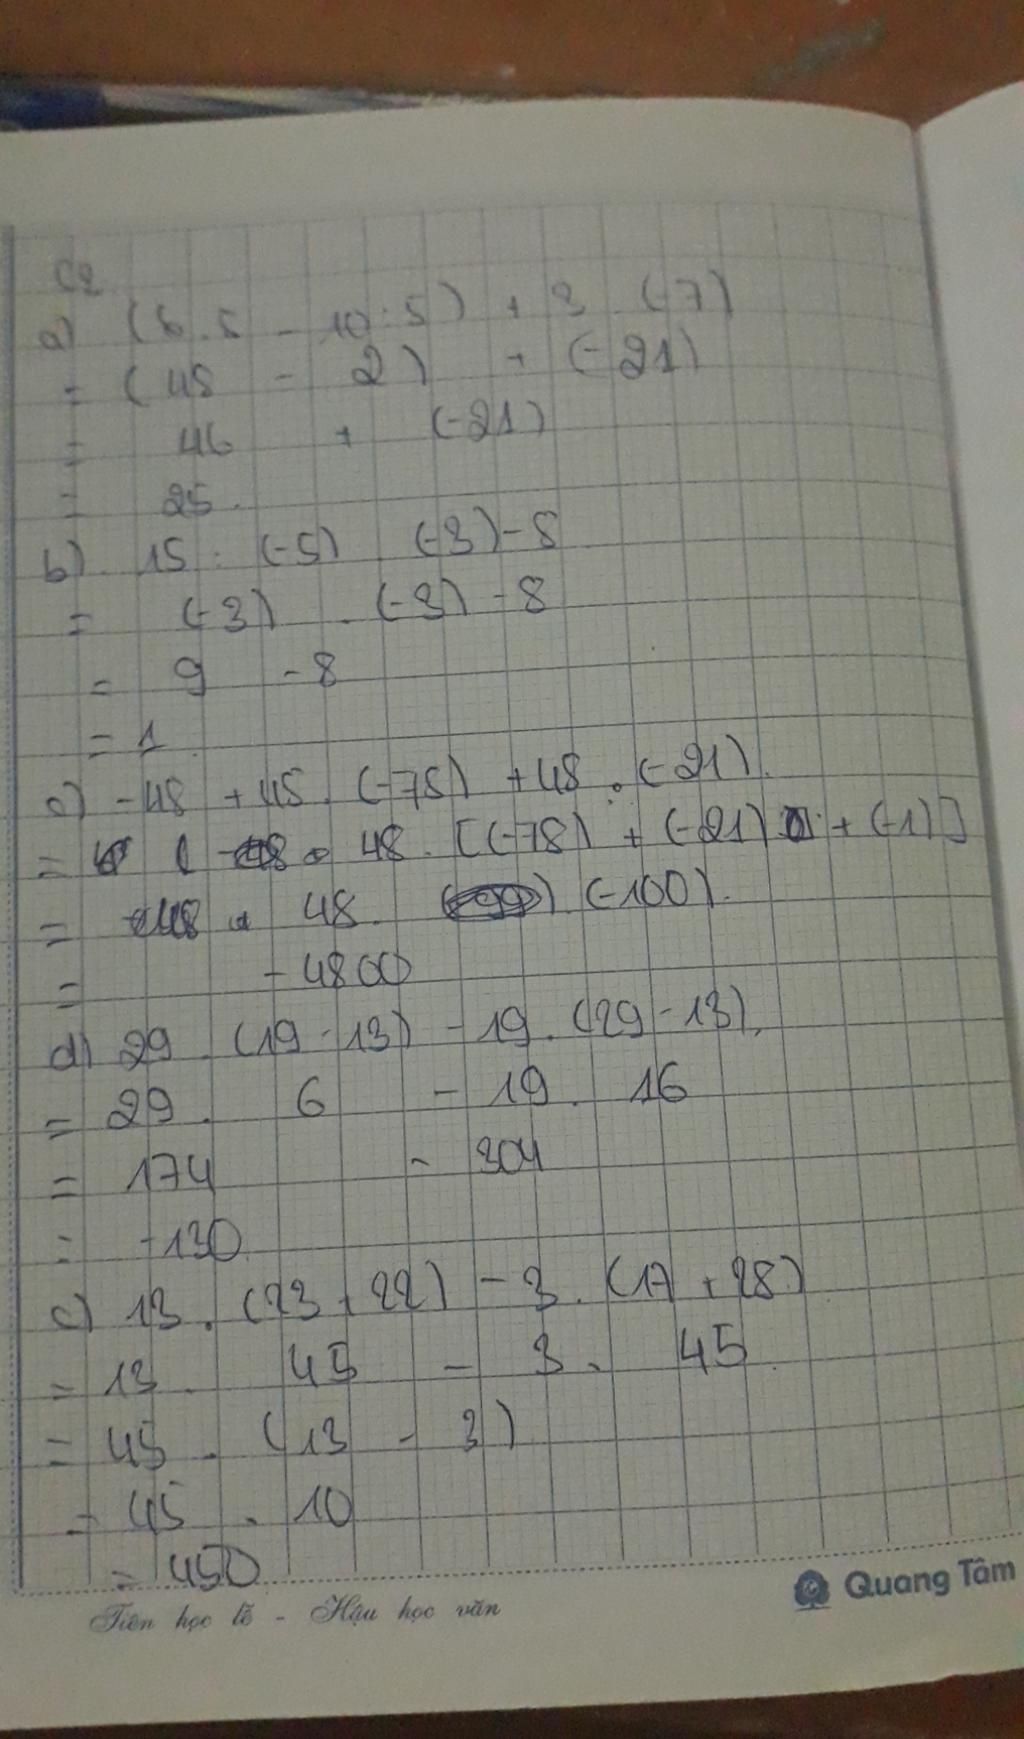 C2
a) (6.8 - 10:5) + 3.(-7)
= (48 - 2) + (-21)
= 46 + (-21)
= 25.
b) 15 : (-5) . (-3) - 8
= (-3) . (-3) - 8
= 9 - 8
= 1
c) -48 + 48. (-78) + 48 . (-21).
= 48. [(-78) + (-21) + (-1)]
= 48. (-100).
= -4800
d) 29 . (19 - 13) - 19. (29 - 13).
= 29. 6 - 19. 16
= 174 - 304
= -130
c) 13. (23 + 22) - 3. (17 + 28)
= 13. 45 - 3. 45
= 45. (13 - 3)
= 45 . 10
= 450
Quang Tâm
Tiên học lễ - Hậu học văn